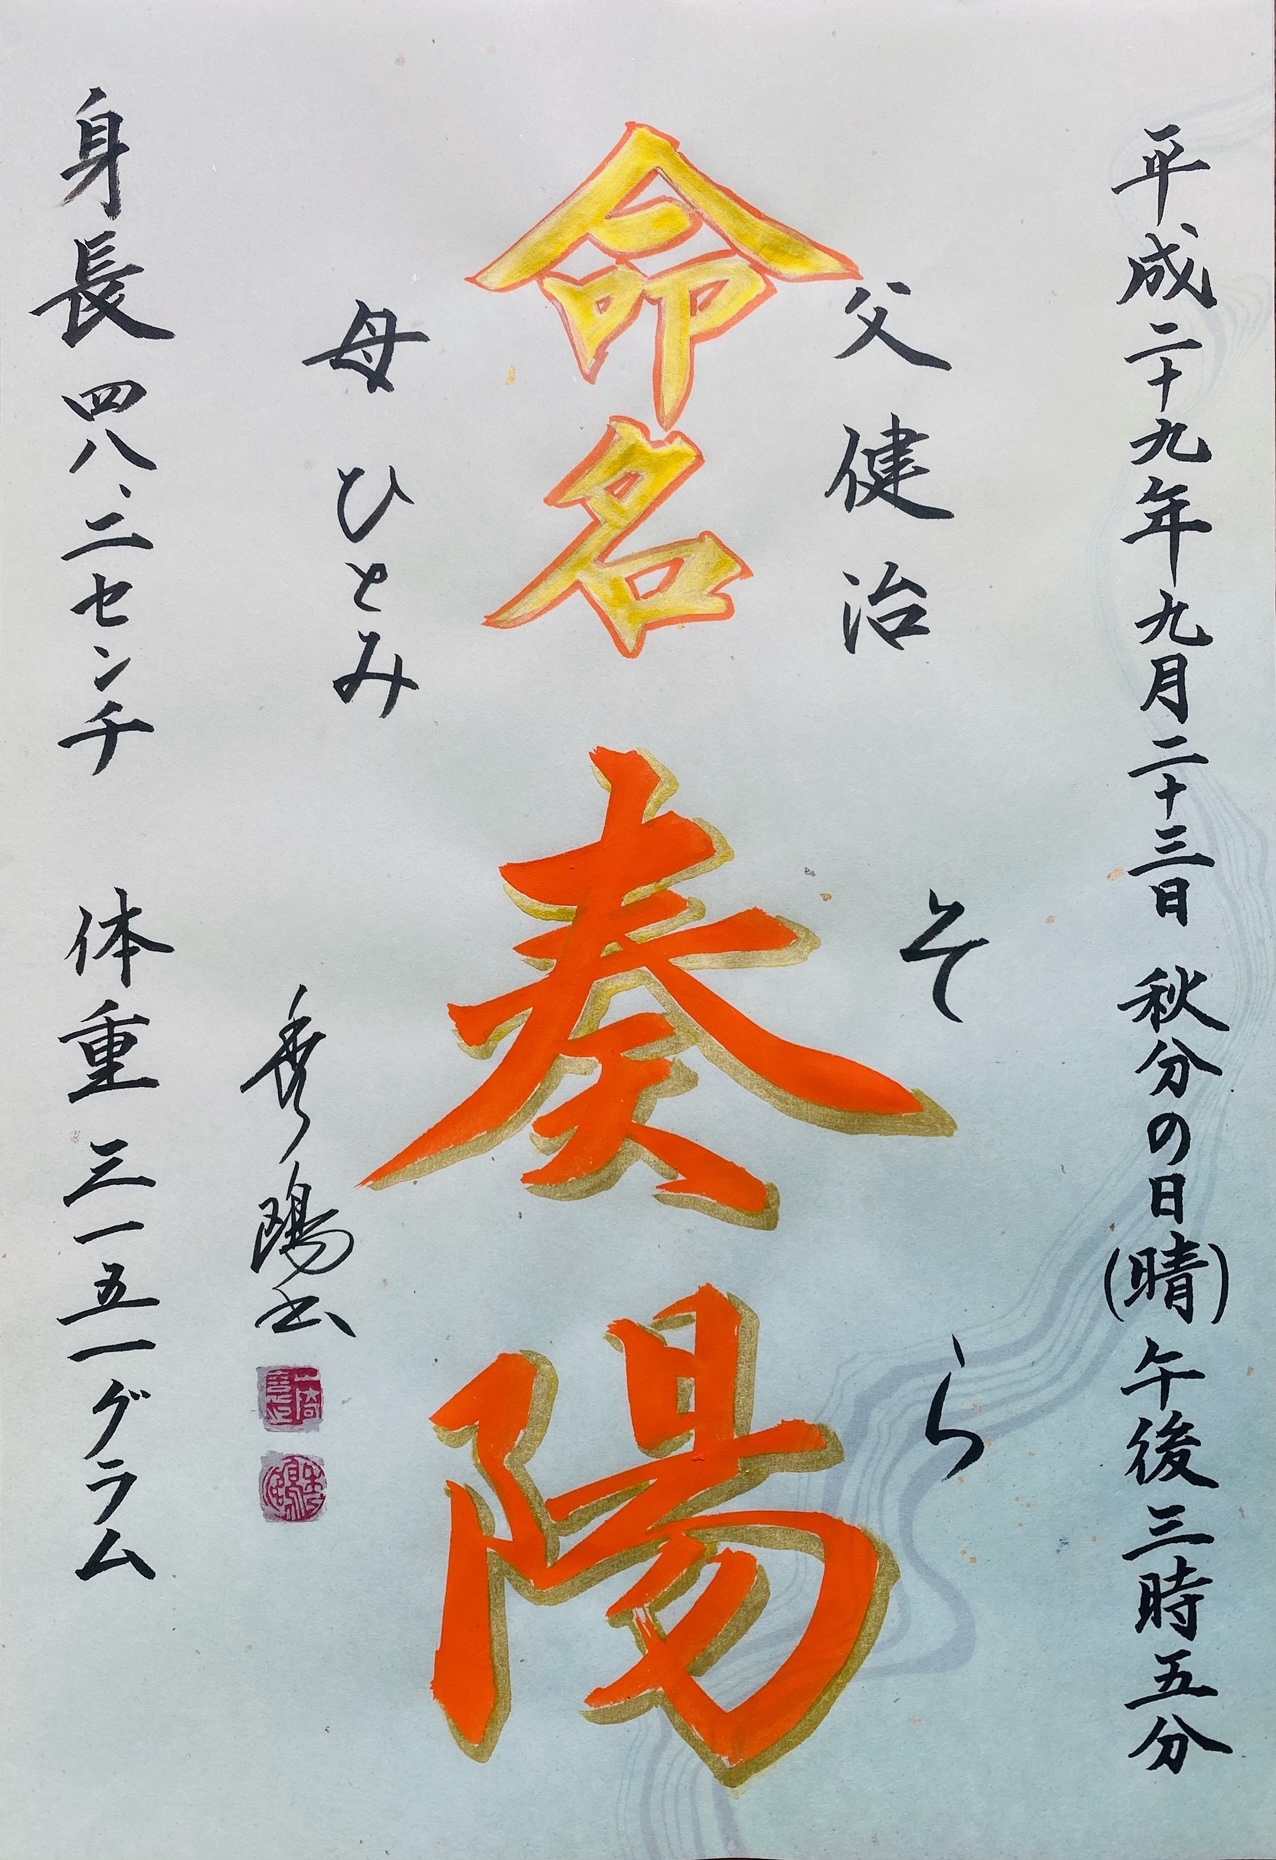 平成二十九年九月二十三日 秋分の日(晴)午後三時五分
父 健治
そら
命名 奏陽
母 ひとみ
秀陽書
身長 四八、二センチ 体重 三一五一グラム